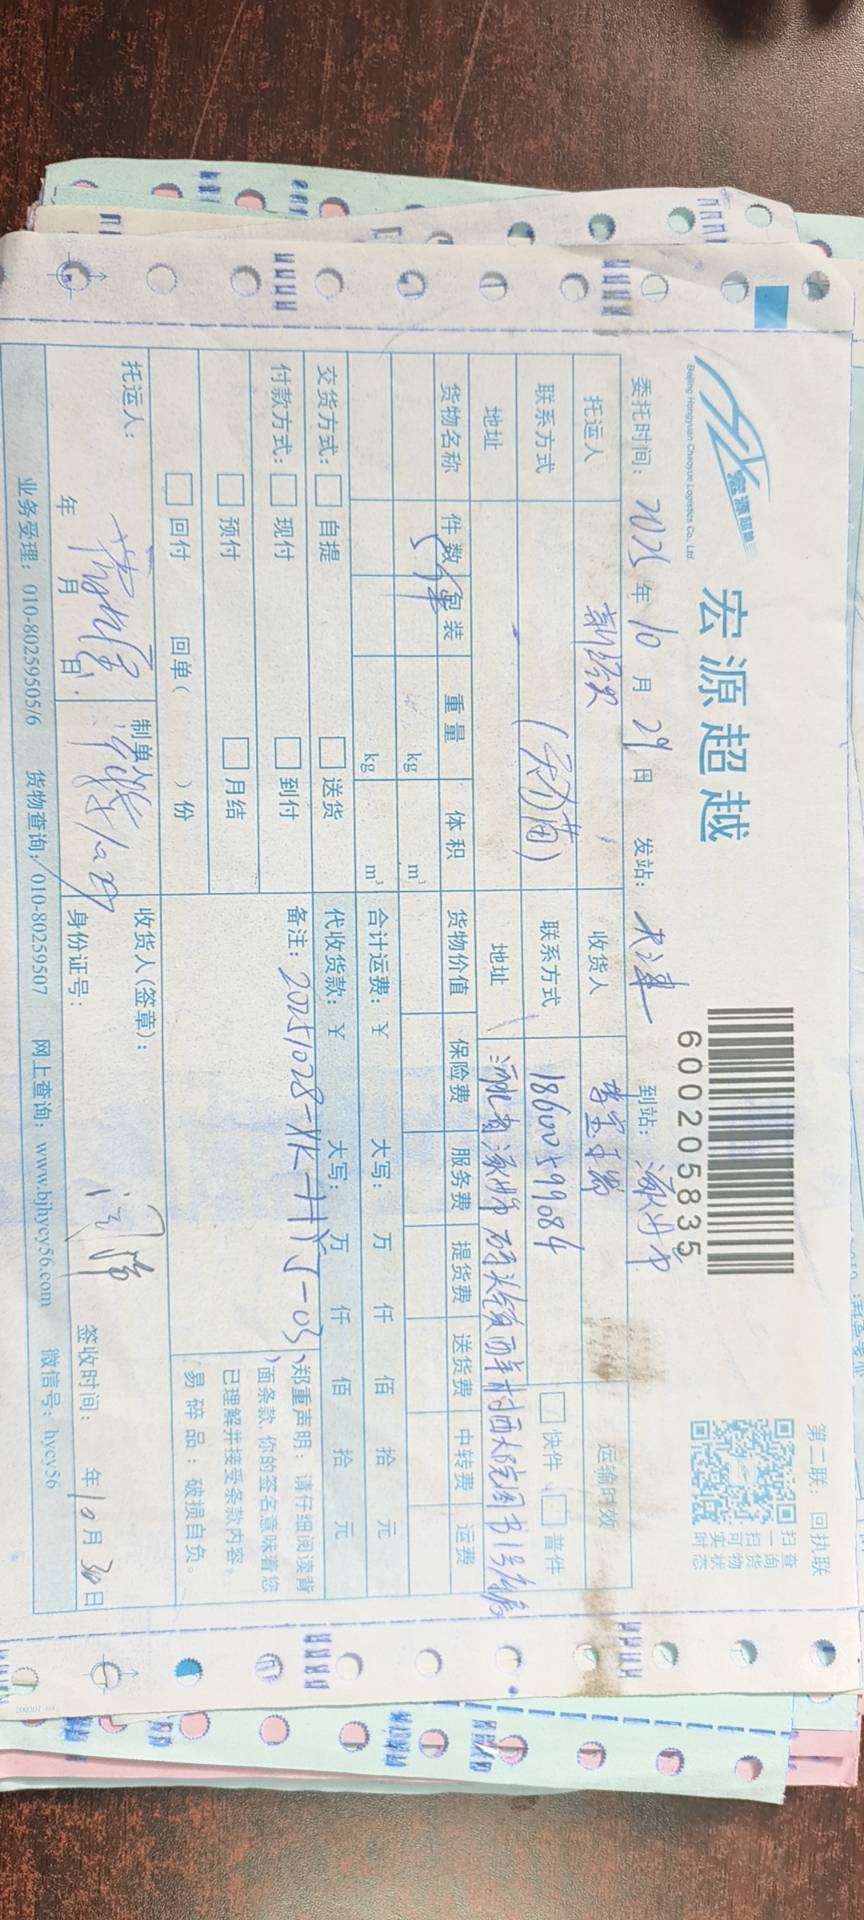 宏源超越
Beijing Hongyuan Chaoyue Logistics Co., Ltd
600205835
第二联：回执联
扫一扫可实时
查询货物状态
委托时间：2025年10月29日 发站：天津 到站：涿州市
托运人 收货人 运输时效
联系方式 联系方式 18600599084 快件 普件
地址 地址 河北省涿州市码头镇西辛村西大院图书
货物名称 件数 包装 重量 体积 货物价值 保险费 服务费 提货费 送货费 中转费 运费
5件 kg m³
kg m³ 合计运费：￥ 大写： 万 仟 佰 拾 元
交货方式： 自提 送货 代收货款：￥ 大写： 万 仟 佰 拾 元
付款方式： 现付 到付 备注：20251028-XK-HYJ-03
预付 月结
回付 回单（ ）份
郑重声明：请仔细阅读背
面条款，你的签名意味着您
已理解并接受条款内容。
易碎品：破损自负。
托运人： 制单人 收货人(签章)：
年 月 日 10.29 身份证号： 签收时间： 年10月30日
业务受理：010-80259505/6 货物查询：010-80259507 网上查询：www.bjhycy56.com 微信号：hycy56